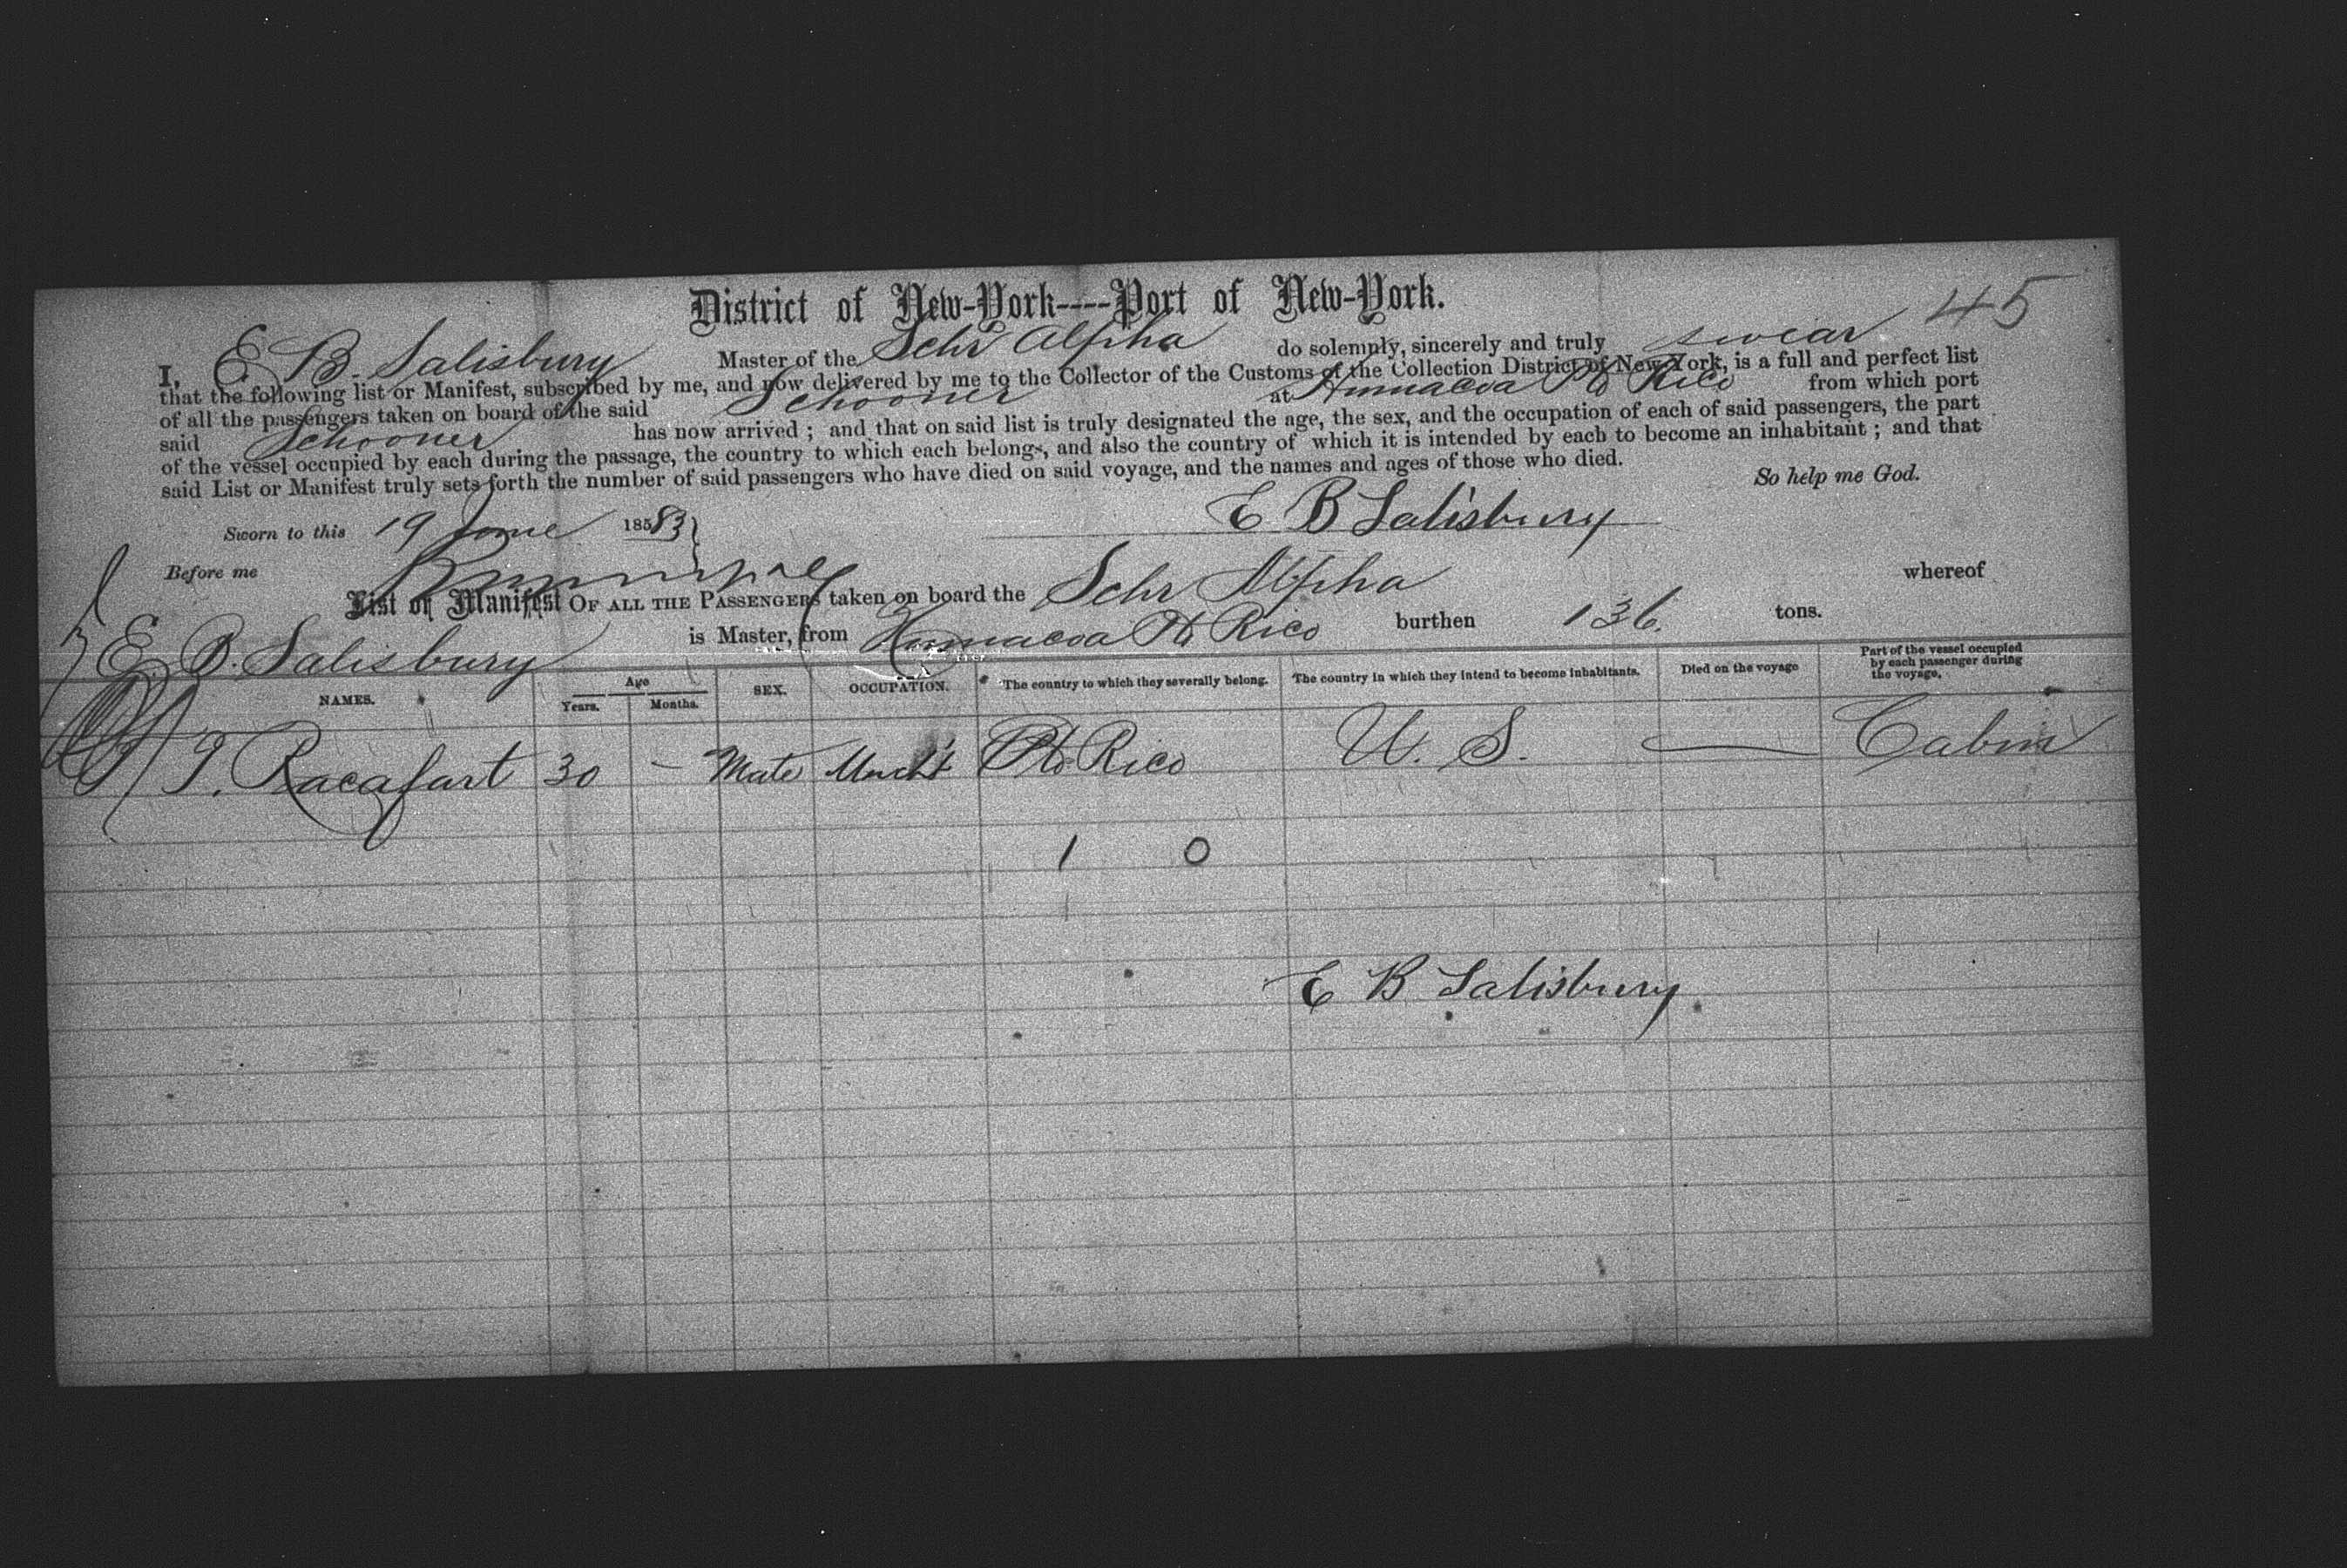 District of New-York----Port of New-York.
45
I, E. B. Salisbury Master of the Schr Alpha do solemnly, sincerely and truly swear
that the following list or Manifest, subscribed by me, and now delivered by me to the Collector of the Customs of the Collection District of New York, is a full and perfect list
of all the passengers taken on board of the said Schooner at Humacoa Pto Rico from which port
said Schooner has now arrived ; and that on said list is truly designated the age, the sex, and the occupation of each of said passengers, the part
of the vessel occupied by each during the passage, the country to which each belongs, and also the country of which it is intended by each to become an inhabitant ; and that
said List or Manifest truly sets forth the number of said passengers who have died on said voyage, and the names and ages of those who died.
So help me God.
Sworn to this 19 June 18583
E B Salisbury
Before me
List or Manifest OF ALL THE PASSENGERS taken on board the Schr Alpha whereof
E. B. Salisbury is Master, from Humacoa Pto Rico burthen 136. tons.
NAMES. Age Years. Months. SEX. OCCUPATION. The country to which they severally belong. The country in which they intend to become inhabitants. Died on the voyage Part of the vessel occupied by each passenger during the voyage.
J. Racafart 30 – Male Mercht Pto Rico U. S. — Cabin
1 0
E B Salisbury